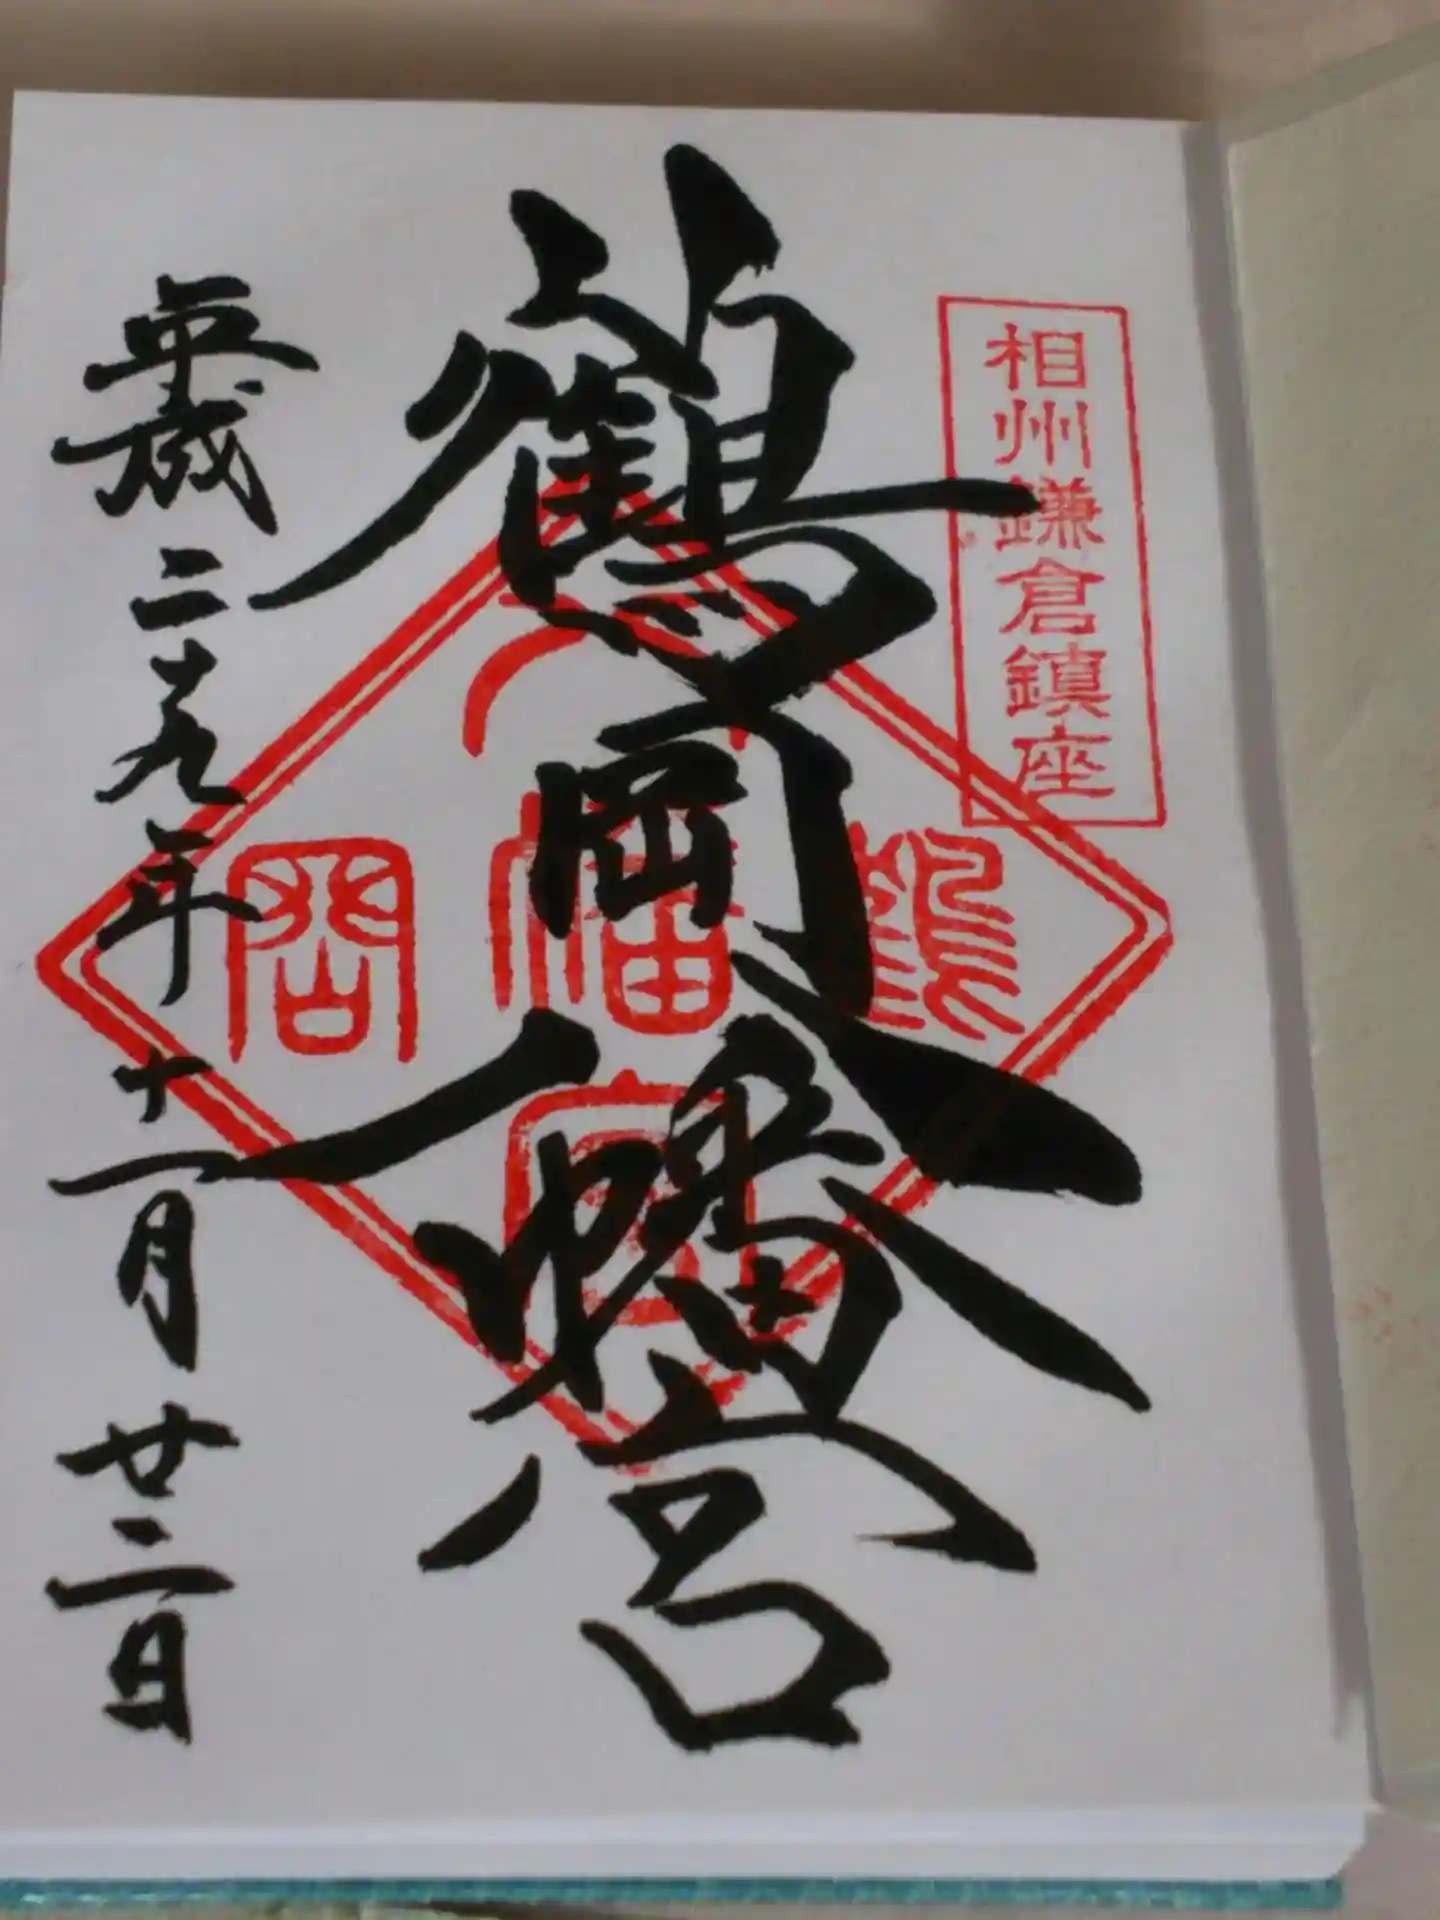 相州鎌倉鎮座
鶴岡八幡宮
平成二十九年十一月廿二日
鶴
八幡
岡
宮